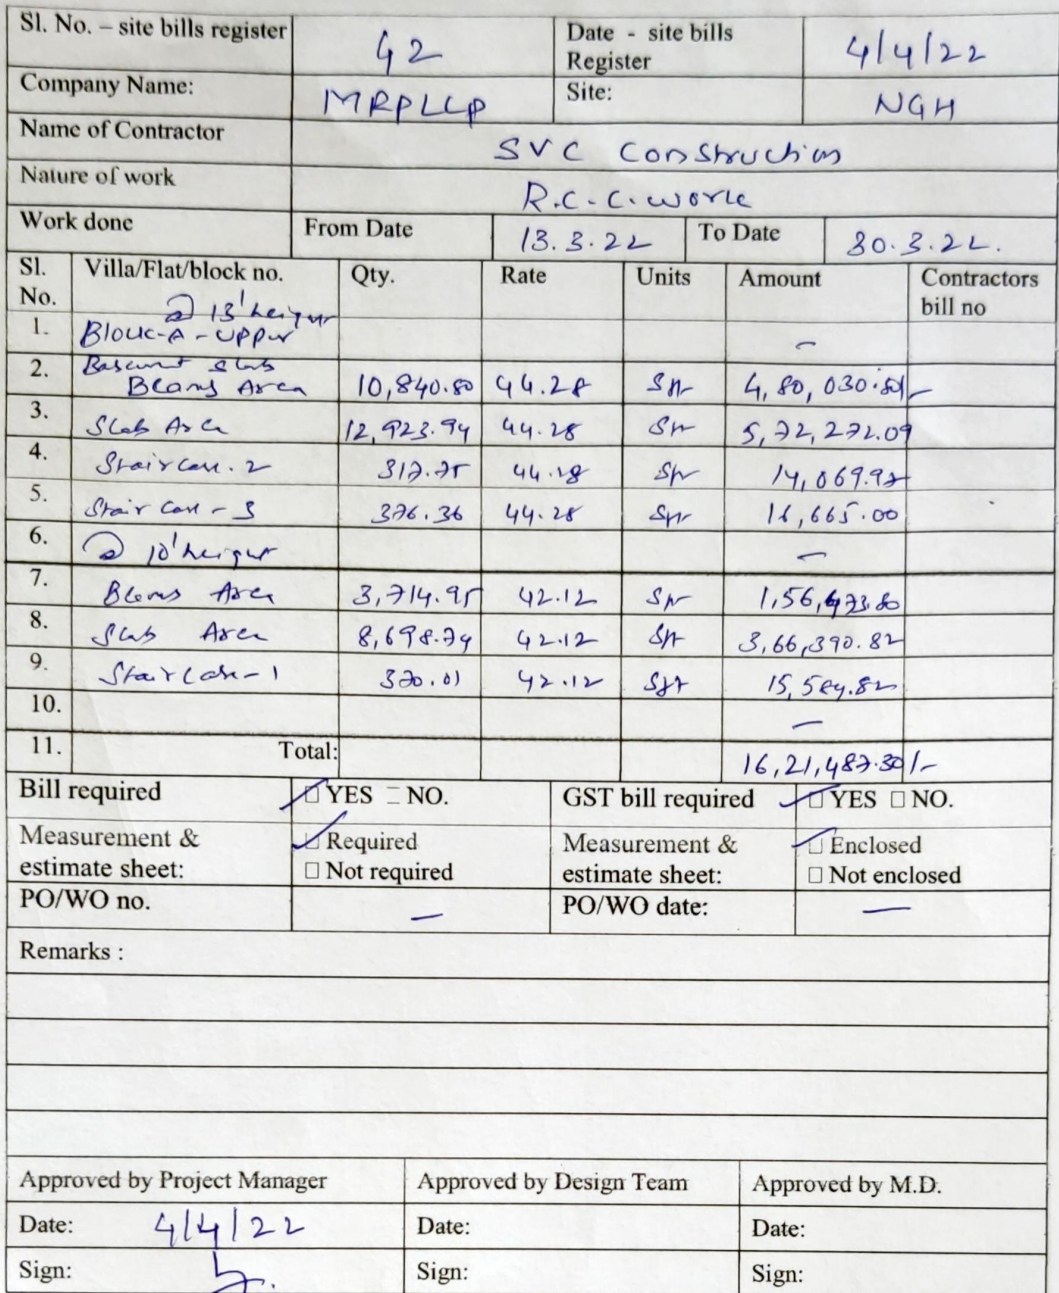 Sl. No. – site bills register 42 Date - site bills Register 4/4/22
Company Name: MRPLLP Site: NGH
Name of Contractor SVC Construction
Nature of work R.C.C. work
Work done From Date 13.3.22 To Date 30.3.22.
Sl. No. Villa/Flat/block no. Qty. Rate Units Amount Contractors bill no
@ 13' height
1. Block-A-Upper –
2. Basement slab
Beams Area 10,840.80 44.28 Sft 4,80,030. /-
3. Slab Area 12,923.94 44.28 Sft 5,72,272.09
4. Staircase.2 317.75 44.28 Sft 14,069.97
5. Stair Case - 3 376.36 44.28 Sft 16,665.00
6. @ 10' height –
7. Beams Area 3,714.95 42.12 Sft 1,56,473.80
8. Slab Area 8,698.74 42.12 Sft 3,66,390.82
9. Staircase-1 370.01 42.12 Sft 15,584.82
10. –
11. Total: 16,21,487.30/-
Bill required ✓ □ YES □ NO. GST bill required ✓ □ YES □ NO.
Measurement & estimate sheet: ✓ □ Required □ Not required Measurement & estimate sheet: ✓ □ Enclosed □ Not enclosed
PO/WO no. – PO/WO date: –
Remarks :
Approved by Project Manager Approved by Design Team Approved by M.D.
Date: 4/4/22 Date: Date:
Sign: Sign: Sign: